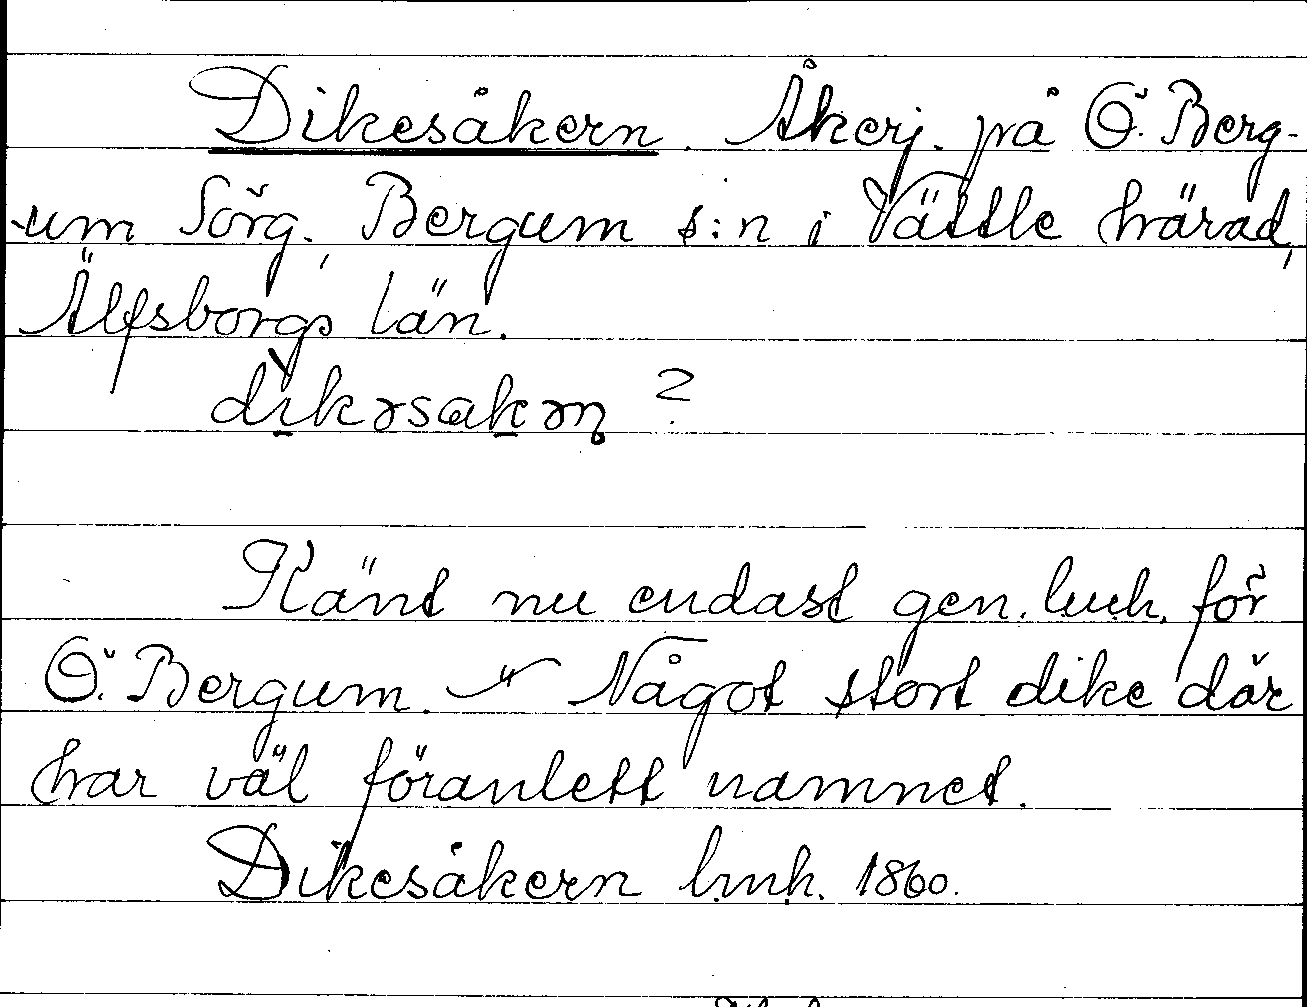 Dikesåkern. Åkerj. på Ö. Berg-
um Sörg., Bergum s:n i Vättle härad,
Älfsborgs län.
dìkəsakəɳ ?
Känt nu endast gen. lmh. för
Ö. Bergum. – Något stort dike där
har väl föranlett namnet.
Dikesåkern lmh. 1860.